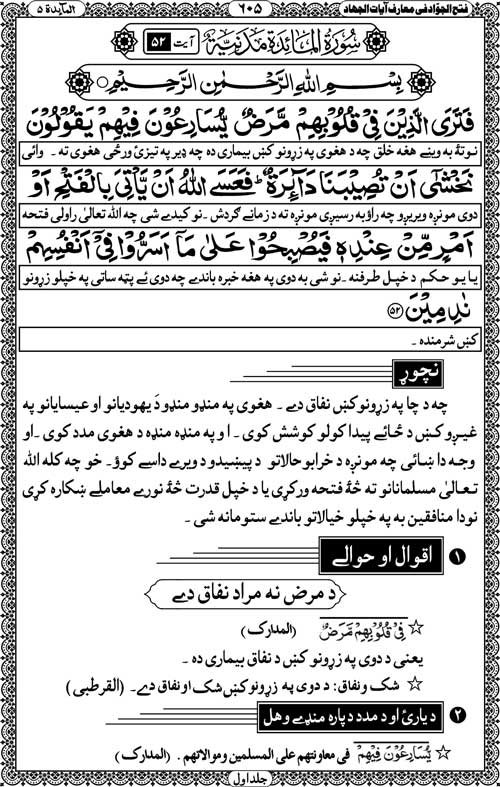 فتح الجوّاد فی معارف آیات الجهاد ۶۰۵ المآیدة ۵
سُوْرَةُ الْمَآئِدَةِ مَدَنِيَّةٌ آیت ۵۲
بِسْمِ اللهِ الرَّحْمٰنِ الرَّحِيْمِ
فَتَرَى الَّذِيْنَ فِيْ قُلُوْبِهِمْ مَّرَضٌ يُّسَارِعُوْنَ فِيْهِمْ يَقُوْلُوْنَ
نو تهٔ به وینے هغه خلق چه د هغوی په زړونو کښ بیماری ده چه ډیر په تیزئ ورځی هغوی ته ۔ وائی
نَخْشٰٓى اَنْ تُصِيْبَنَا دَآئِرَةٌ ؕ فَعَسَى اللهُ اَنْ يَّاْتِيَ بِالْفَتْحِ اَوْ
دوی مونږه ویریږو چه راؤ به رسیږی مونږه ته د زمانے گردش ۔ نو کیدے شی چه الله تعالیٰ راولی فتحه
اَمْرٍ مِّنْ عِنْدِهٖ فَيُصْبِحُوْا عَلٰى مَآ اَسَرُّوْا فِيْٓ اَنْفُسِهِمْ
یا یو حکم د خپل طرفنه ۔ نو شی به دوی په هغه خبره باندے چه دوی ئے پټه ساتی په خپلو زړونو
نٰدِمِيْنَ ۵۲
کښ شرمنده ۔
نچوړ
چه د چا په زړونو کښ نفاق دے ۔ هغوی په منډو منډو دَ یهودیانو او عیسایانو په
غیږو کښ د ځائے پیدا کولو کوشش کوی ۔ او په منډه منډه د هغوی مدد کوی ۔ او
وجه دا ښائی چه مونږه د خرابو حالاتو د پیښیدو د ویرے داسے کوؤ ۔ خو چه کله الله
تعالیٰ مسلمانانو ته څهٔ فتحه ورکړی یا د خپل قدرت څهٔ نورے معاملے ښکاره کړی
نو دا منافقین به په خپلو خیالاتو باندے ستومانه شی ۔
۱ اقوال او حوالے
د مرض نه مراد نفاق دے
☆ فِيْ قُلُوْبِهِمْ مَّرَضٌ (المدارک)
یعنی د دوی په زړونو کښ د نفاق بیماری ده ۔
☆ شک ونفاق: د دوی په زړونو کښ شک او نفاق دے ۔ (القرطبی)
۲ د یارئ او د مدد دپاره منډے وهل
☆ يُسَارِعُوْنَ فِيْهِمْ فی معاونتهم علی المسلمین وموالاتهم ۔ (المدارک)
جلد اول